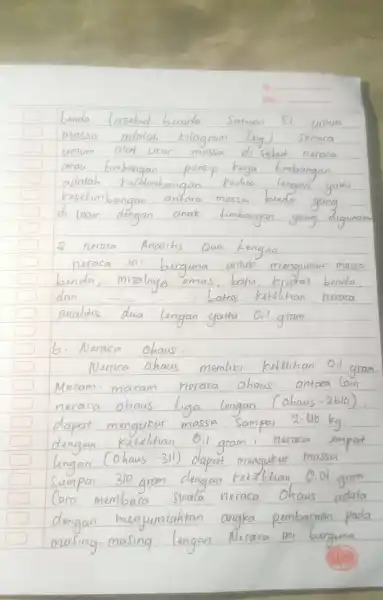 benda tersebut berada Satuan SI untuk
massa adalah kilogram (kg) Secara
umum alat ukur massa di sebut neraca
atau timbangan prinsip kerja timbangan
adalah keseimbangan kedua lengan yaitu
keseimbangan antara massa benda yang
di ukur dengan anak timbangan yang digunakan
a neraca Analitis Dua Lengan
neraca ini berguna untuk mengukur massa
benda, misalnya emas, batu, kristal benda,
dan Batas ketelitian neraca
analitis dua lengan yaitu 0.1 gram
b. Neraca Ohaus.
Neraca Ohaus memiliki ketelitian 0.1 gram
Macam-macam neraca ohaus antara lain
neraca ohaus tiga lengan (Ohaus-2610),
dapat mengukur massa Sampai 2.610 kg
dengan ketelitian 0,1 gram, neraca empat
lengan (Ohaus-311) dapat mengukur massa
Sampai 310 gram dengan ketelitian 0.01 gram
Cara membaca skala neraca Ohaus adala
dengan menjumlahkan angka pembacaan pada
masing-masing lengan Neraca ini berguna